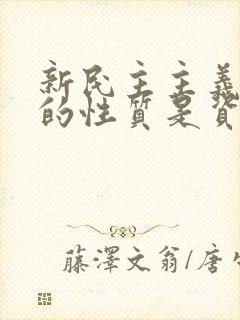 新民主主義
的性質是資
藤澤文翁/唐